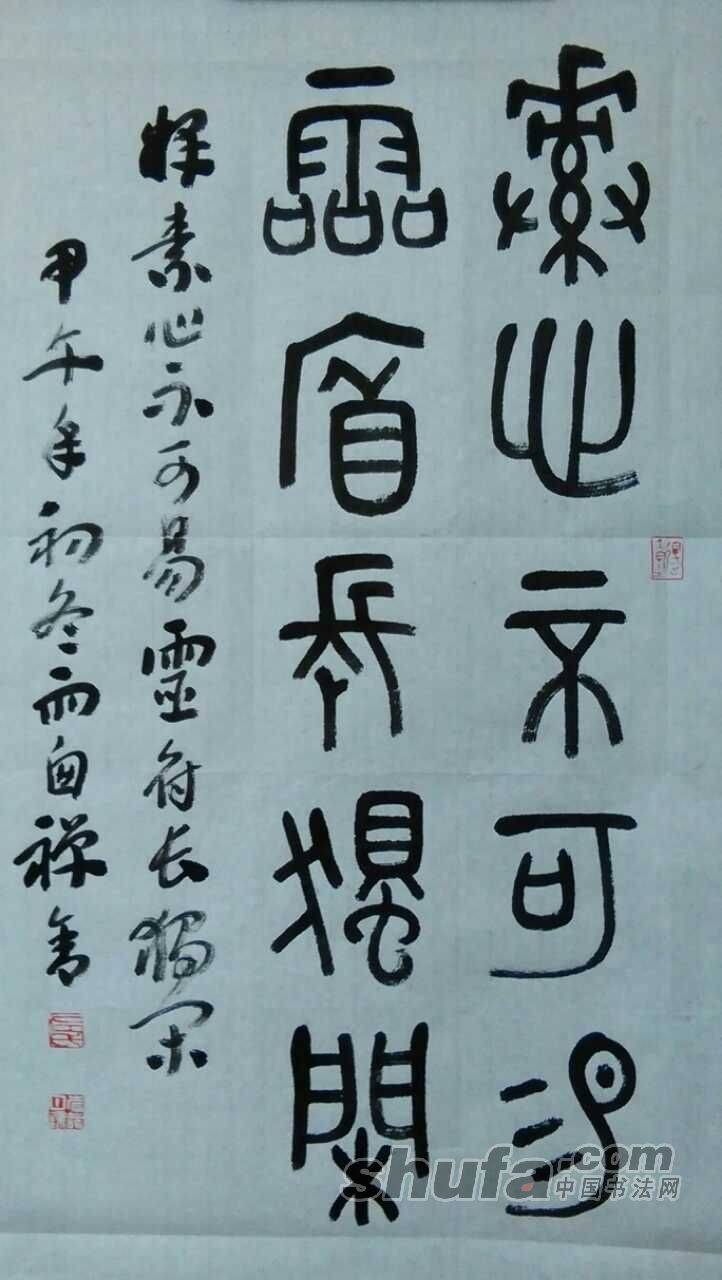 素心不可易
靈府長獨閑
釋素心不可易靈府长獨闲
甲午年初冬禅書
shufa.com
中国书法网